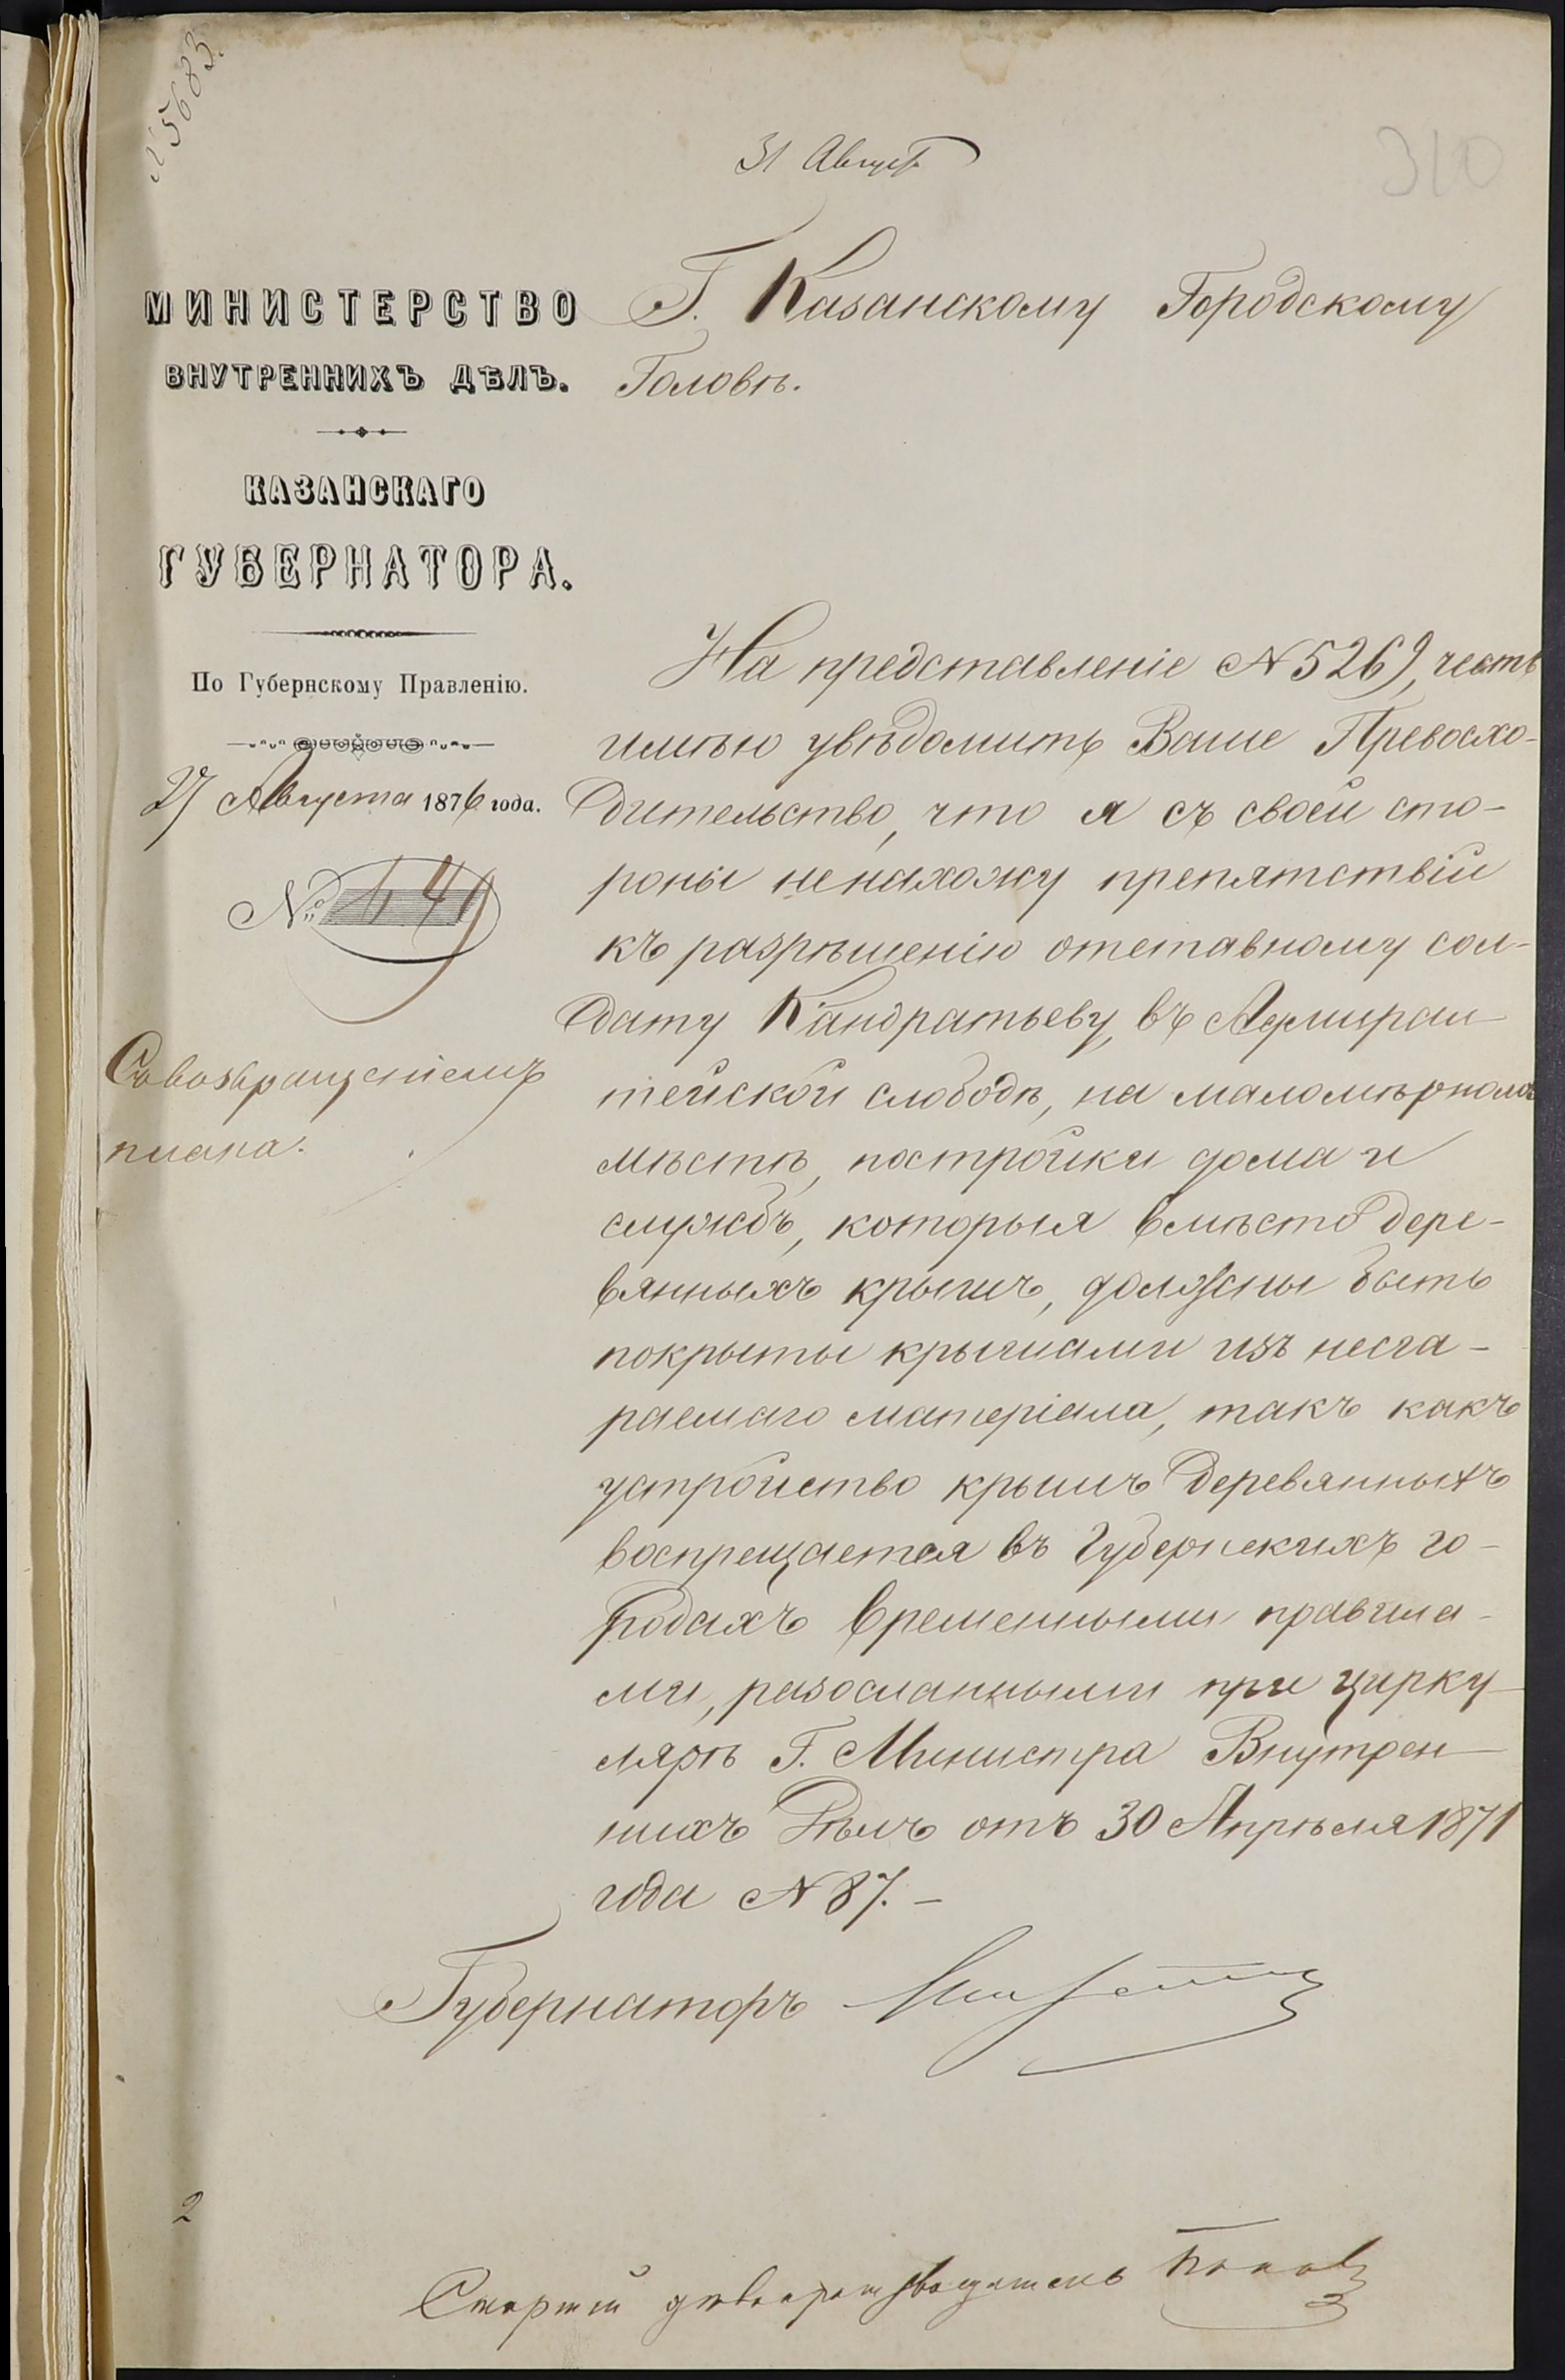 № 5683.
31 Август
310
МИНИСТЕРСТВО
ВНУТРЕННИХЪ ДѢЛЪ.
КАЗАНСКАГО
ГУБЕРНАТОРА.
По Губернскому Правленію.
27 Августа 1876 года.
№ 649
Совозвращеніемъ
плана.
Г. Казанскому Городскому
Головѣ.
На представленіе № 5269, честь
имѣю увѣдомить Ваше Превосхо-
дительство, что я съ своей сто-
роны ненахожу препятствій
къ разрѣшенію отставному сол-
дату Кандратьеву, въ Адмирал
тейской слободѣ, на маломѣрномъ
мѣстѣ, постройки дома и
службъ, которыя вмѣсто дере-
вянныхъ крышъ, должны быть
покрыты крышами изъ несга-
раемаго матеріала, такъ какъ
устройство крышъ деревянныхъ
воспрещается въ Губернскихъ го-
родахъ временными правила-
ми, разосланными при цирку-
лярѣ Г. Министра Внутрен-
нихъ Дѣлъ отъ 30 Апрѣля 1871
года № 87. –
Губернаторъ
2
Старшій дѣлопроизводитель Попов